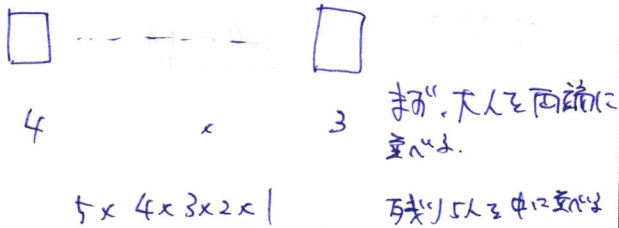 4 × 3
まず、大人を両端に
並べる.
5 × 4 × 3 × 2 × 1
残り5人を中に並べる